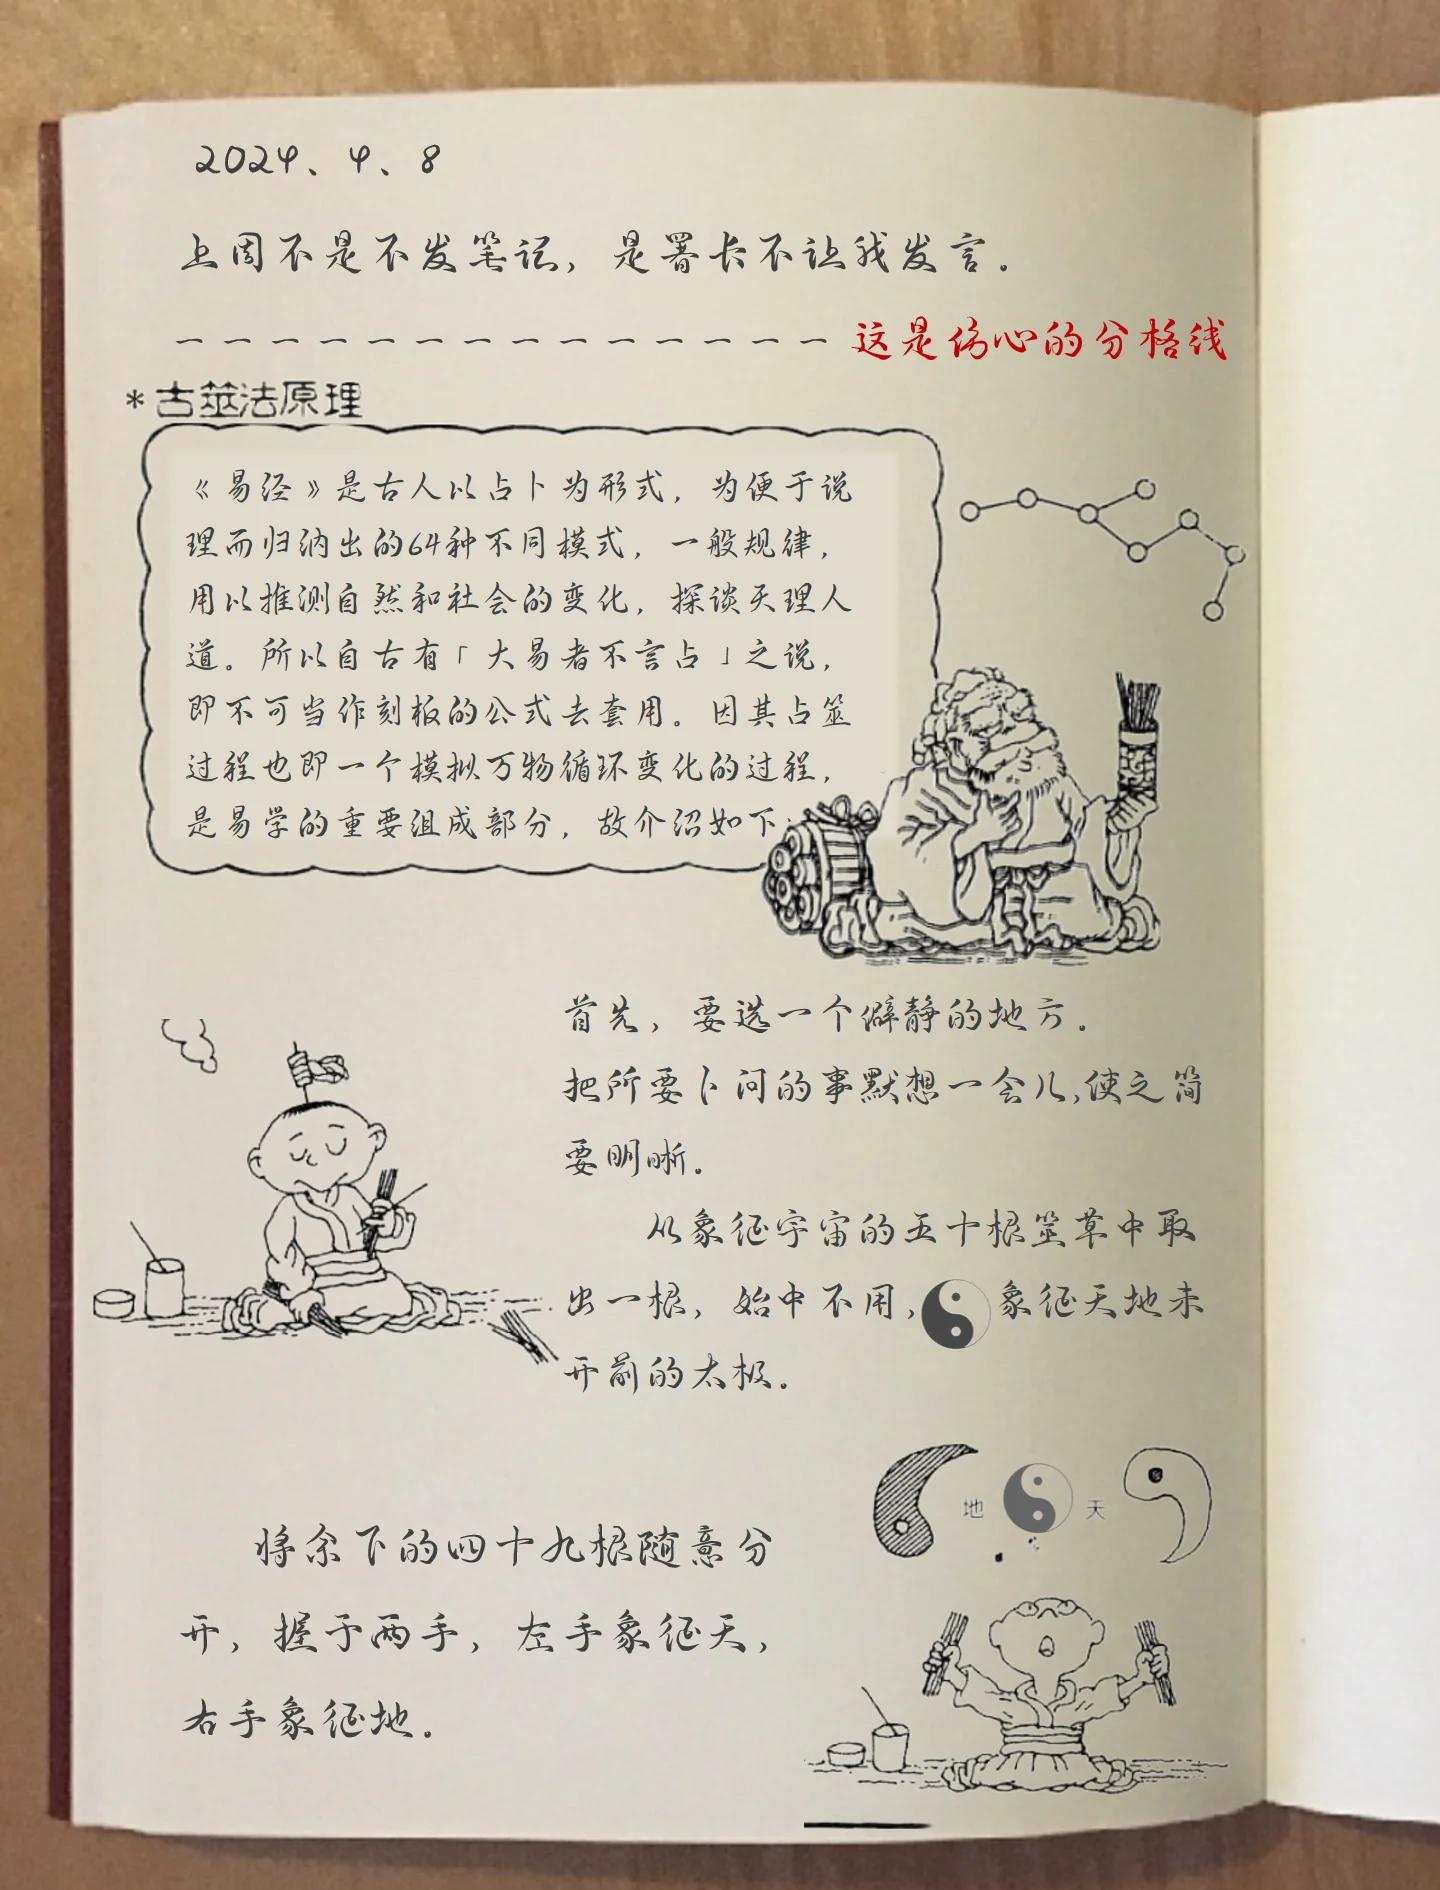 2024、4、8
上周不是不发笔记，是署卡不让我发言。
－－－－－－－－－－－－－－ 这是伤心的分格线
*古筮法原理
《易经》是古人以占卜为形式，为便于说
理而归纳出的64种不同模式，一般规律，
用以推测自然和社会的变化，探谈天理人
道。所以自古有「大易者不言占」之说，
即不可当作刻板的公式去套用。因其占筮
过程也即一个模拟万物循环变化的过程，
是易学的重要组成部分，故介绍如下：
首先，要选一个僻静的地方。
把所要卜问的事默想一会儿，使之简
要明晰。
从象征宇宙的五十根筮草中取
出一根，始中不用，象征天地未
开前的太极。
地 天
将余下的四十九根随意分
开，握于两手，左手象征天，
右手象征地。